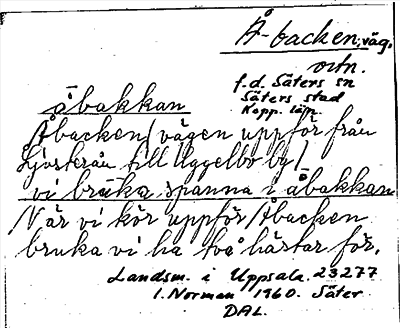 Å-backen, väg.
ortn.
f.d. Säters sn
Säters stad
Kopp. län
åbakkan
/Åbacken/ vägen uppför från
till Uggelbo by/
vi brúka spanna i åbakkan
/När vi kör uppför/Åbacken
bruka vi ha två hästar för.
Landsm. i Uppsala 23277
I. Norman 1960. Säter
DAL.